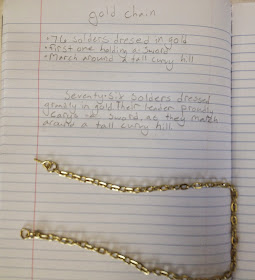 gold chain
• 76 solders dresed in gold
• First one holding a sword
• March around a tall curvy hill
Seventy-six solders dressed
in gold. Their leader proudly
a sword, as they march
around a tall curvy hill